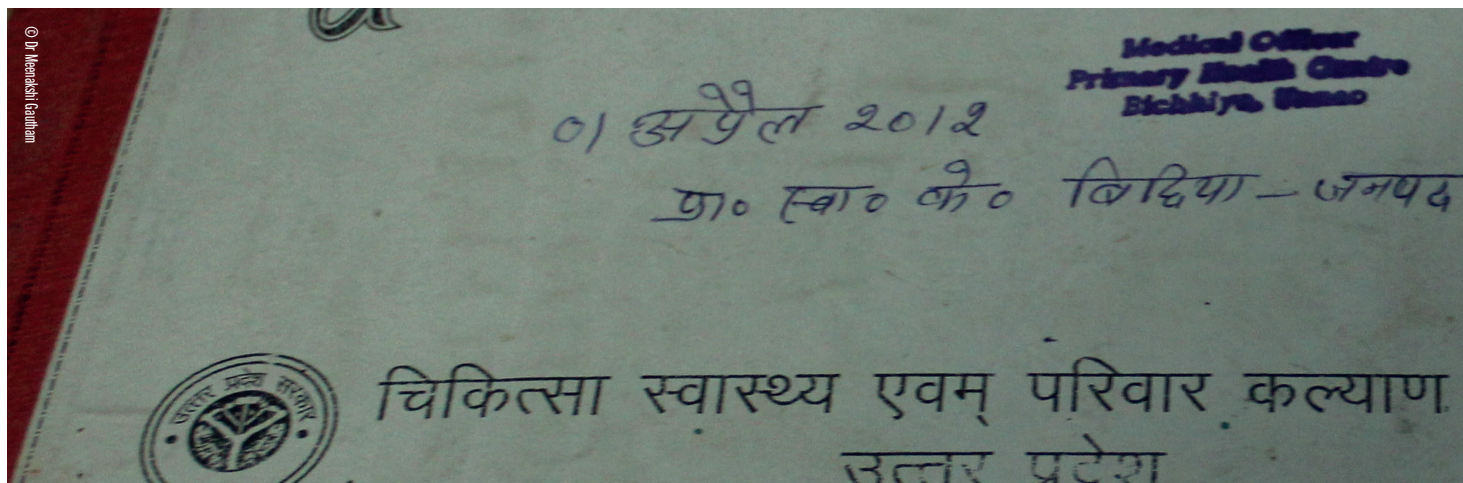 © Dr Meenakshi Gautham
Medical Officer
Primary Health Centre
Bichhiya, Unnao
01 अप्रैल 2012
प्रा० स्वा० के० बिछिया – जनपद
उत्तर प्रदेश सरकार
चिकित्सा स्वास्थ्य एवम् परिवार कल्याण
उत्तर प्रदेश